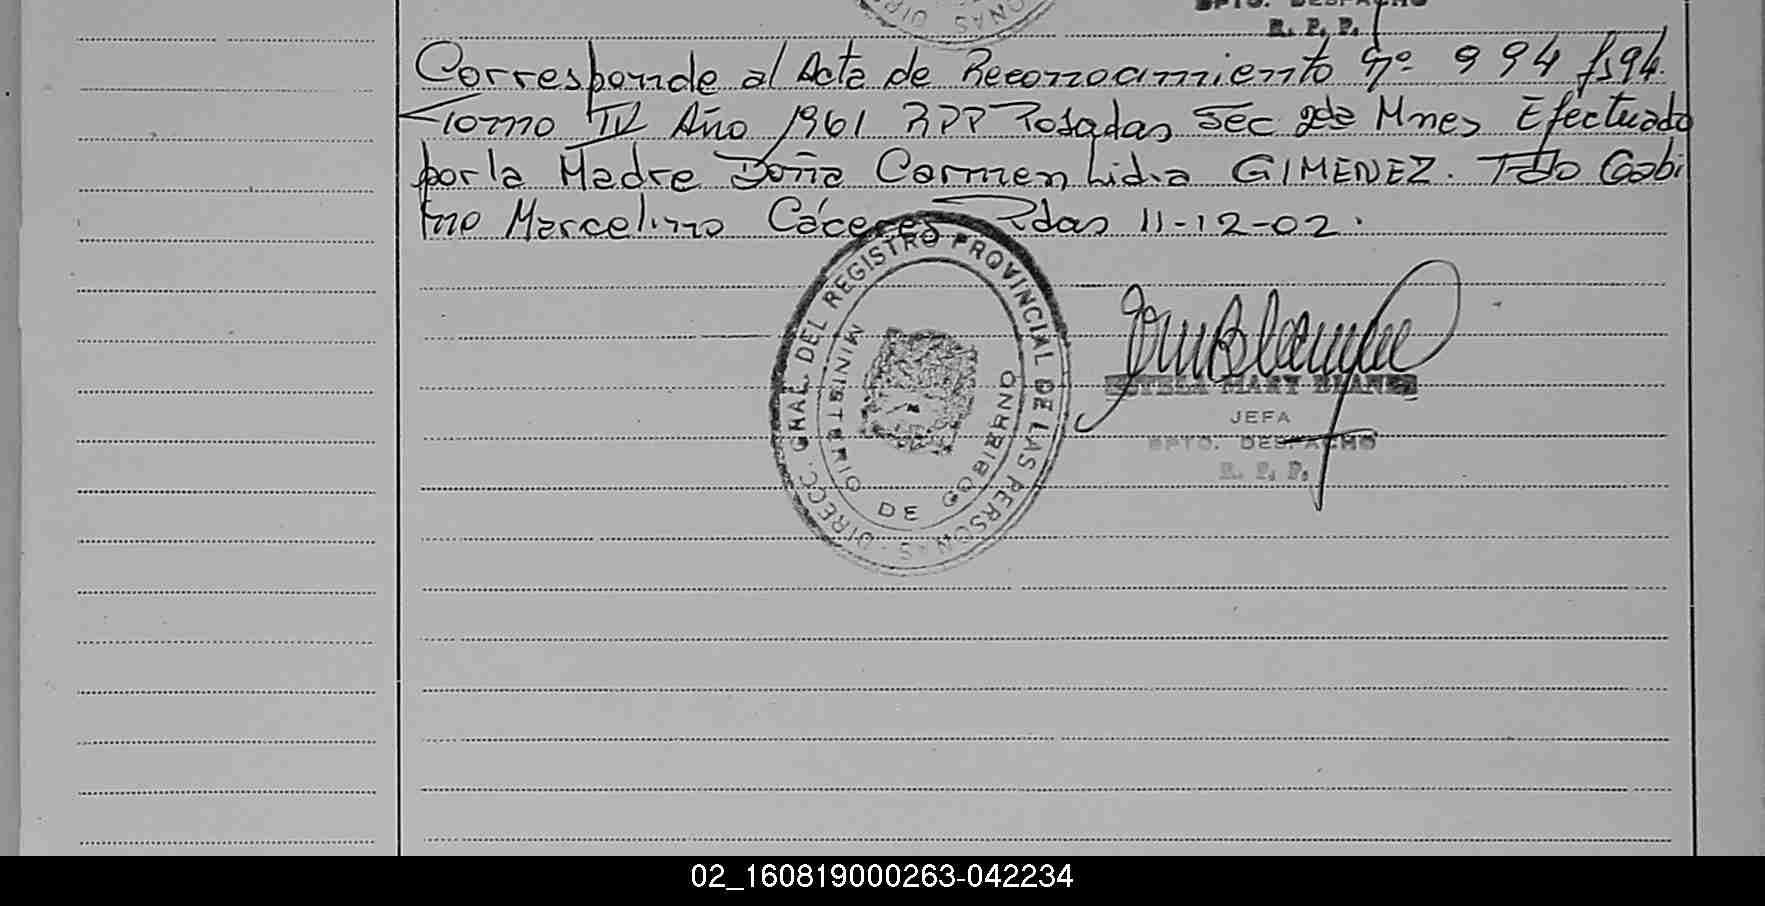 DPTO. DESPACHO
R. P. P.
Corresponde al Acta de Reconocimiento Nº 994 fs 94.
Tomo IV Año 1961 RPP Posadas Sec 2da Mnes Efectuado
por la Madre Doña Carmen Lidia GIMENEZ. Fdo Gabi
no Marcelino Cáceres Pdas 11-12-02.
DIRECC. GRAL. DEL REGISTRO PROVINCIAL DE LAS PERSONAS
MINISTERIO DE GOBIERNO
ESTELA MARY BLANES
JEFA
DPTO. DESPACHO
R. P. P.
02_160819000263-042234